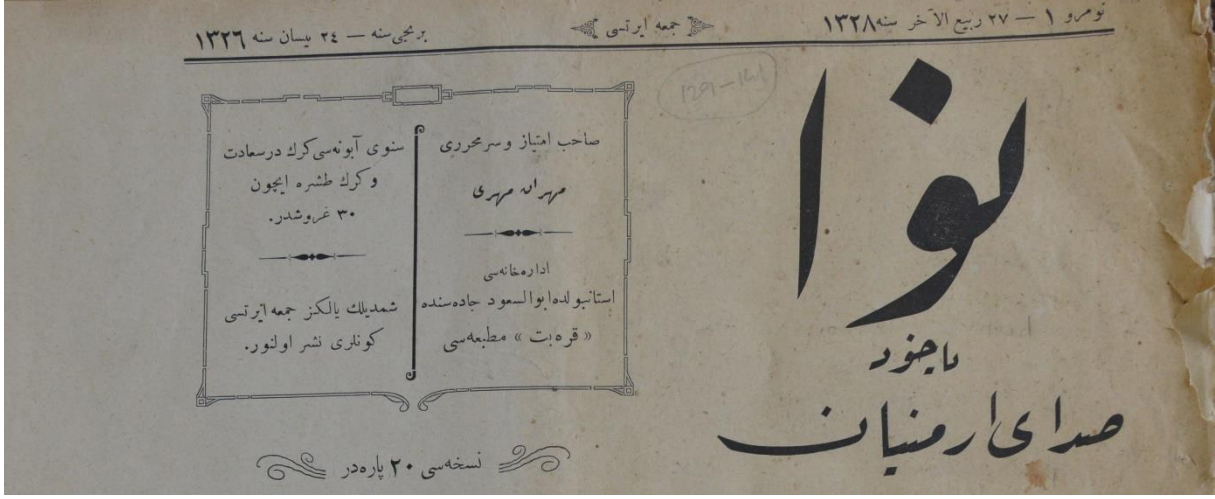 نومرو ١ — ٢٧ ربيع الآخر سنه ١٣٢٨
جمعه ايرتسى
برنجى سنه — ٢٤ نيسان سنه ١٣٢٦
نوا
ياخود
صداى ارمنيان
صاحب امتياز و سرمحررى
مهران مهرى
اداره‌خانه‌سى
استانبولده ابوالسعود جاده‌سنده
« قره‌بت » مطبعه‌سى
سنوى آبونه‌سى كرك درسعادت
و كرك طشره ايچون
٣٠ غروشدر.
شمديلك يالكز جمعه ايرتسى
كونلرى نشر اولنور.
نسخه‌سى ٢٠ پاره‌در